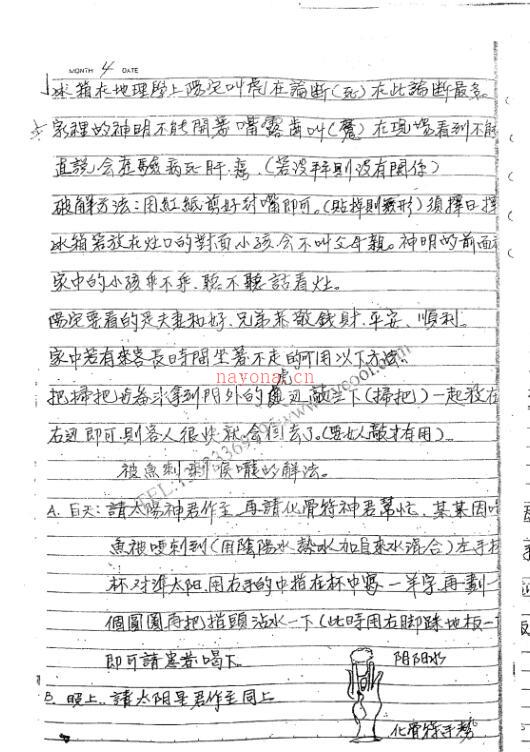 MONTH 4 DATE
冰箱在地理學上陽宅叫虎在論斷(死)在此論斷最多。
家裡的神明不能開著嘴露齒叫(魔)在現場看到不能
直說會在驗病死肝.(若沒拜則沒有關係)
破解方法:用紅紙剪好封嘴即可。(貼掉則無形)須擇日擇
冰箱若放在灶口的對面小孩會不叫父母親。神明的前面
家中的小孩乖不乖、聽不聽話看灶。
陽宅要看的是夫妻和好、兄弟恭敬錢財、平安、順利。
家中若有來客長時間坐著不走的可用以下方法。
nayona.cn
把掃把畚斗拿到門外的虎边敲三下(掃把)一起放在
右边即可.則客人很快就會回去了。(要女人敲才有用)
被魚刺刺喉嚨的解法。
A. 白天:請太陽神君作主再請化骨符神君幫忙、某某因
魚被哽刺到(用陰陽水熱水加自來水混合)左手拉
杯对準太阳.用右手的中指在杯中寫一羊字再劃一
個圓圈再把指頭沾水一下(此時用右脚踩地板一
即可請患者喝下 阴阳水
B. 晚上..請太阴星君作主同上
化骨符手勢